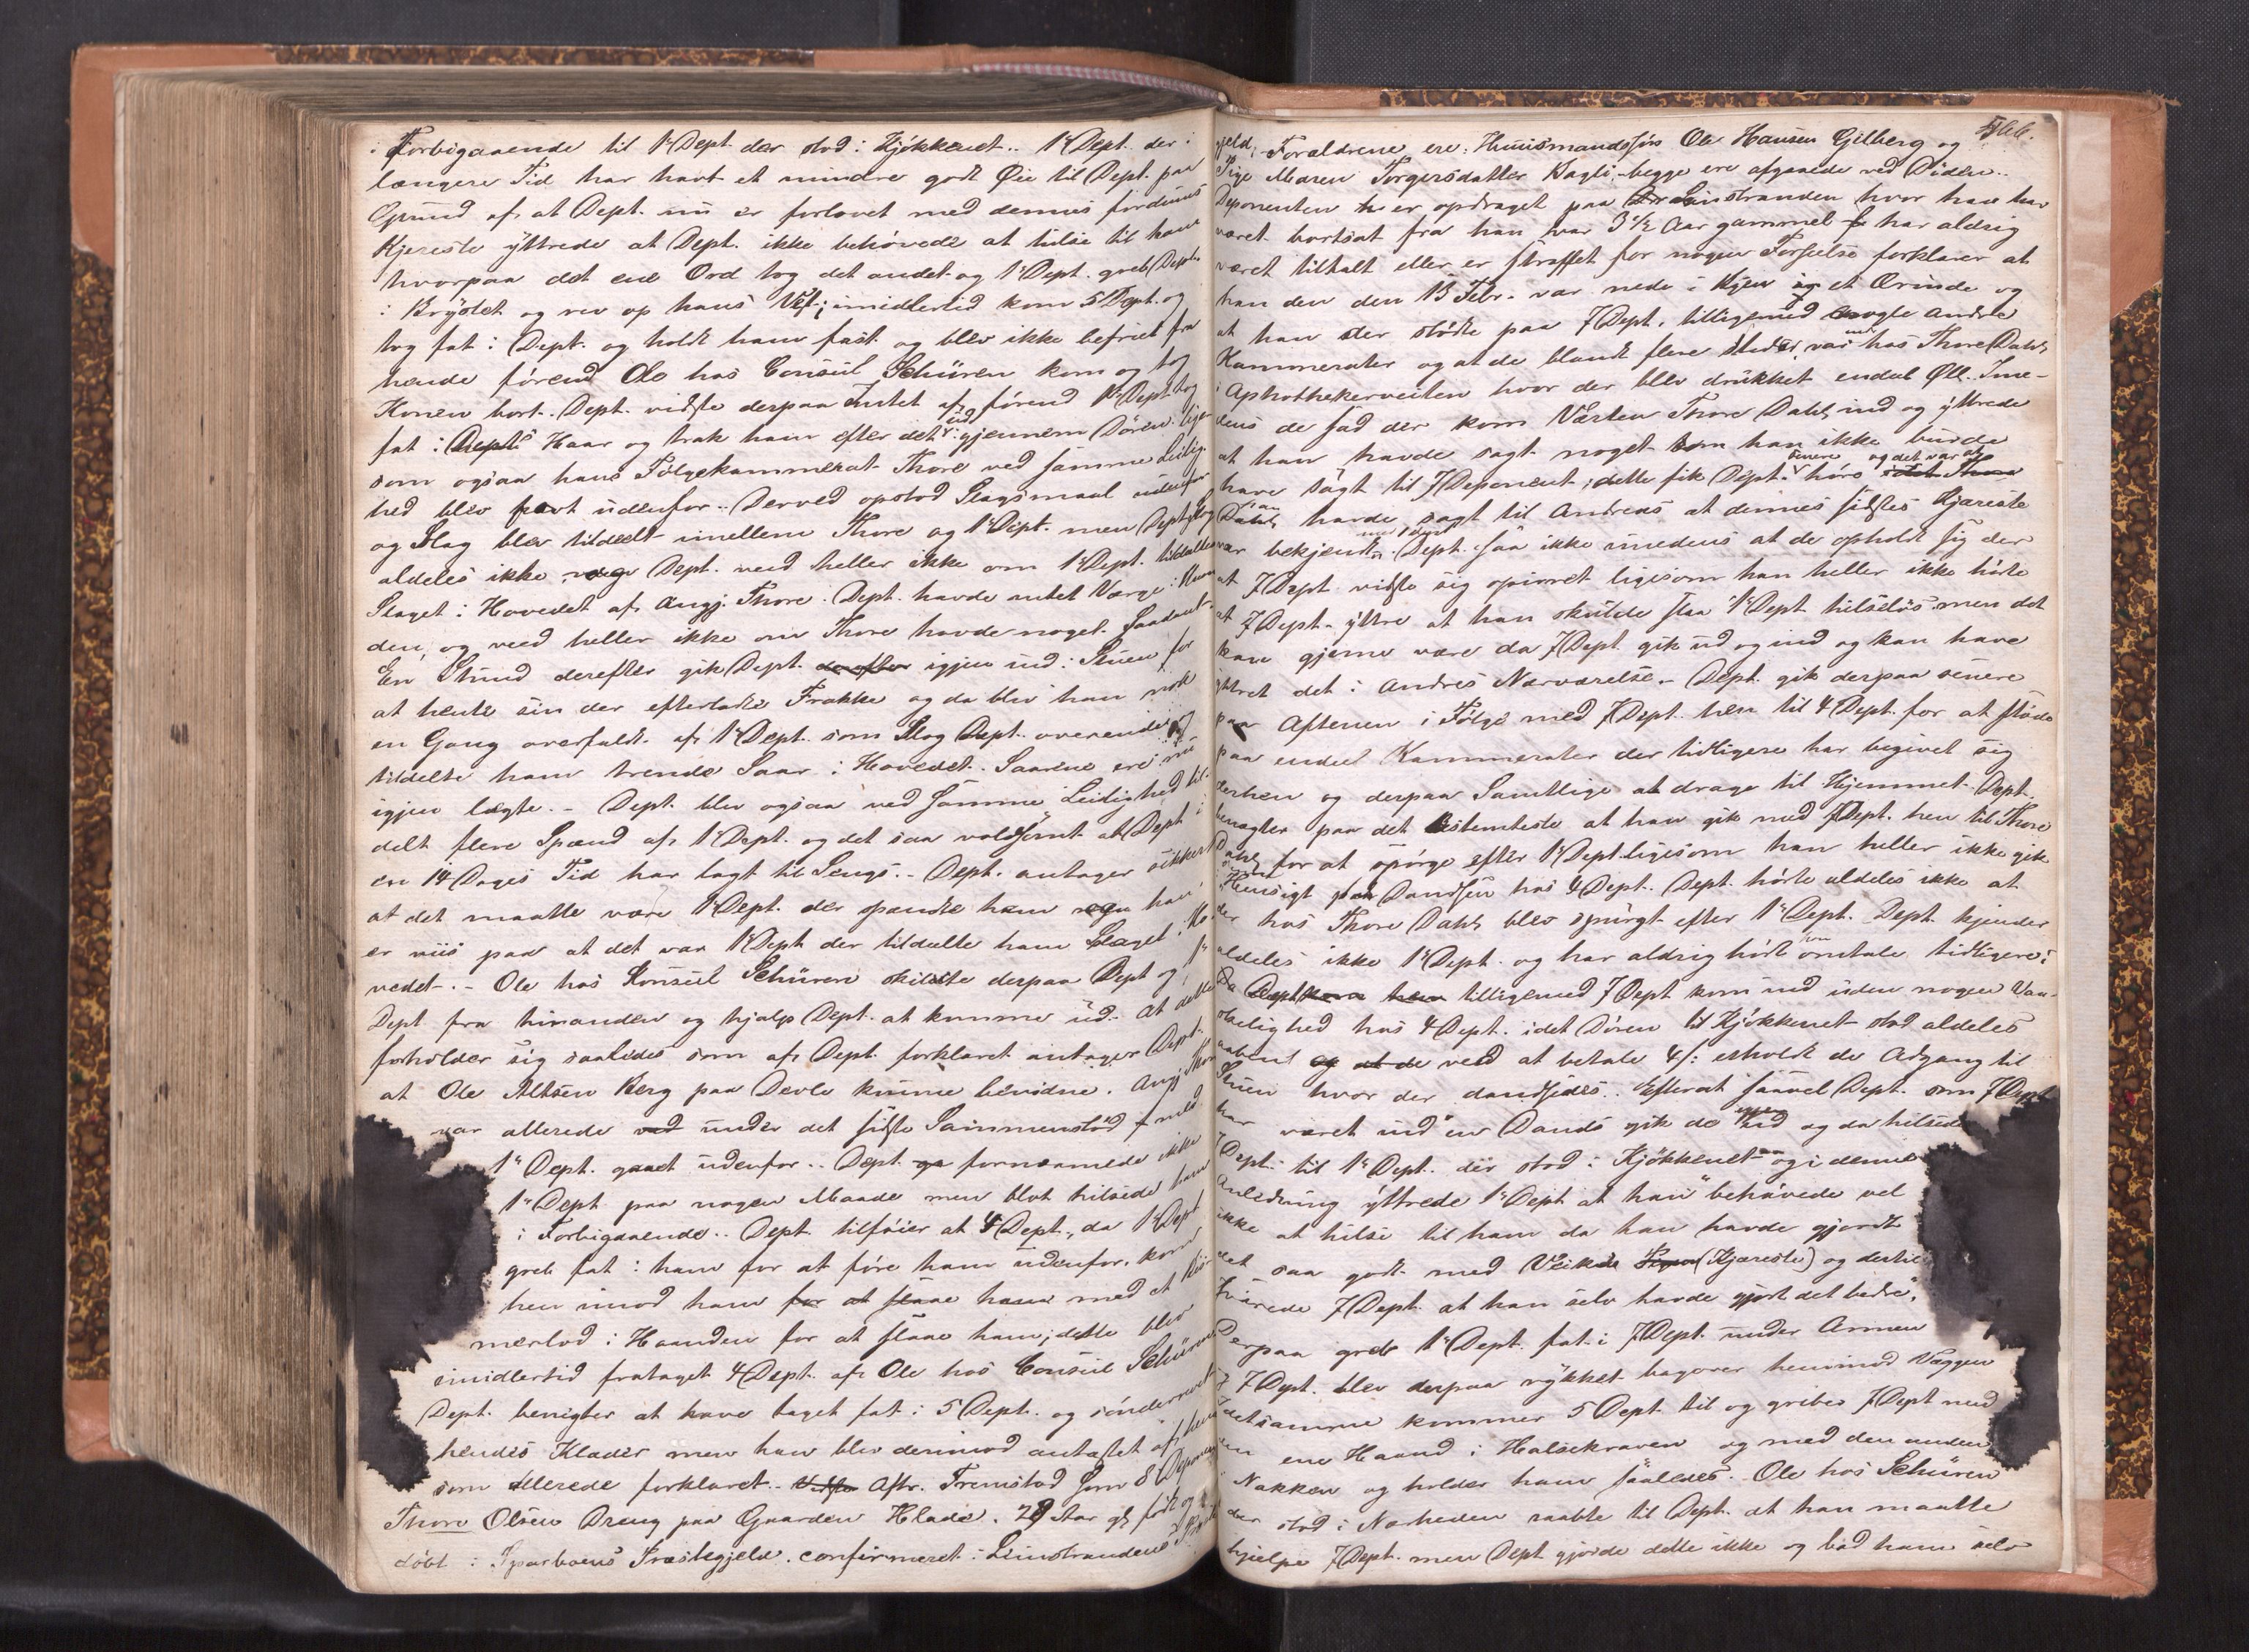 i Forbigaaende til 1ste Dept der stod i Kjøkkenet.. 1ste Dept. der i
længere Tid har havt et mindre godt Øie til Dept. paa
Grund af at Dept. nu er forlovet med dennes fordums
Kjereste yttrede at Dept. ikke behøvede at hilse til ham
hvorpaa det ene Ord tog det andet og 1ste Dept. greb Depts
i Brystet og rev op hans Vest; imidlertid kom 5 Dept. og
tog fat i Dept. og holdt ham fast og blev ikke befriet fra
hende førend Ole hos Consul Schüren kom og tog
Konen bort. Dept. vidste derpaa Intet af førend 1ste Dept tog
fat i Depts Haar og trak ham efter det ud igjennem Døren lige
som ogsaa hans Følgekammerat Thore ved samme Leilig-
hed blev ført udenfor.. Derved opstod Slagsmaal udenfor
og Slag blev tildeelt imellem Thore og 1ste Dept. men Dept slog
aldeles ikke, Dept. veed heller ikke om 1ste Dept. tildeltes
Slaget i Hovedet af Angj. Thore. Dept. havde intet Værge i Haan
den, og veed heller ikke om Thore havde noget Saadant.
En Stund derefter gik Dept. derefter igjen ind i Stuen for
at hente sin der efterladte Frakke og da blev han nok
en Gang overfaldt af 1ste Dept. som slog Dept. overende og
tildelte ham trende Saar i Hovedet. Saarene ere nu
igjen lægte. - Dept. blev ogsaa ved samme Leilighed til-
delt flere Spænd af 1ste Dept. og det saa voldsomt at Dept i
en 14 Dages Tid har lagt til Sengs. - Dept. antager sikkert
at det maatte være 1ste Dept. der spændte ham han
er viis paa at det var 1ste Dept der tildeelte ham Slaget i Ho-
vedet. - Ole hos Konsul Schüren skildte derpaa Dept og 1ste
Dept fra hinanden og hjalp Dept. at komme ud. At dette
forholder sig saaledes som af Dept. forklaret antager Dept.
at Ole Altsen Berg paa Devle kunne bevidne. Angj Thore
var allerede ved under det sidste Sammenstød med
1ste Dept. gaaet udenfor.. Dept. fornærmede ikke
1ste Dept paa nogen Maade men blot hilsede ham
i Forbigaaende.. Dept tilføier at 4 Dept., da 1ste Dept
greb fat i ham for at føre ham udenfor, kom
hen imod ham for at slaae ham med et Bis-
merlod i Haanden for at slaae ham; dette blev
imidlertid frataget 4 Dept. af Ole hos Consul Schüren
Dept. benegter at have taget fat i 5 Dept. og sønderrevet
hendes Klæder men han blev derimod antastet af hende
som allerede forklaret. Aftr. Fremstod som 8 Deponent
Thore Olsen Dreng paa Gaarden Hlade. 29 Aar gl født og
døbt i Sparboens Præstegjeld, confirmeret i Leinstrandens Præste
566.
gjeld; Forældrene ere: Huusmandssøn Ole Hansen Gilberg og
Pige Maren Torgersdatter Bagli, begge ere afgaaede ved Døden..
Deponenten er opdraget paa Leinstranden hvor han har
været bortsat fra han var 3 1/2 Aar gammel har aldrig
været tiltalt eller er straffet for nogen Forseelse forklarer at
han den den 13 Febr. var nede i Byen i et Ærinde og
at han der stødte paa 7 Dept. tilligemed nogle andre
Kammerater og at de blandt flere Steder var inde hos Thore Dahl
i Aphothekerveiten hvor der blev drukket endel Øll. Ime-
dens de sad der kom Værten Thore Dahl ind og yttrede
at han havde sagt noget som han ikke burde
have sagt til 7 Deponent; dette fik Dept. senere høre og det var at
Dahl havde sagt til Andreas at dennes sidstes Kjæreste
var bekjendt med 1ste Dept. Dept. saa ikke imedens at de opholdt sig der
at 7 Dept. vidste sig opirret ligesom han heller ikke hørte
at 7 Dept. yttre at han skulde slaa 1ste Dept helseløs men det
kan gjerne være da 7 Dept. gik ud og ind og kan have
yttret det i Andres Nærværelse. - Dept. gik derpaa senere
paa Aftenen i Følge med 7 Dept. hen til 4 Dept. for at støde
paa endeel Kammerater der tidligere har begivet sig
derhen og derpaa Samtlige at drage til Hjemmet. Dept.
benægter paa det bestemteste at han gik med 7 Dept. hen til Thore
Dahl for at spørge efter 1ste Dept. ligesom han heller ikke gik
i Hensigt paa Dandsen hos 4 Dept. Dept. hørte aldeles ikke at
der hos Thore Dahl blev spurgt efter 1ste Dept. Dept. kjender
aldeles ikke 1ste Dept. og har aldrig hørt ham omtale tidligere.
Da Dept tilligemed 7 Dept kom ind uden nogen Van-
skelighed hos 4 Dept. idet Døren til Kjøkkenet stod aldeles
aaben og at de ved at betale 4 s: erholdt de Adgang til
Stuen hvor der dandsedes.. Efterat saavel Dept. som 7 Dept
har været ind en Dands gik de igjen ud og da hilsede
7 Dept. til 1ste Dept. der stod i Kjøkkenet og i denne
Anledning yttrede 1ste Dept at han "behøvede vel
ikke at hilse til ham da han havde gjordt
det saa godt med (Kjæreste) og dertil
svarede 7 Dept. at han selv havde gjort det bedre".
Derpaa greb 1ste Dept. fat i 7 Dept. under Armen
7 Dept. blev derpaa rykket bagover henimod Væggen
I detsamme kommer 5 Dept. til og griber 7 Dept med
den ene Haand i Halsekraven og med den anden
i Nakken og holder ham saaledes. Ole hos Schüren
der stod i Nærheden raabte til Dept. at han maatte
hjelpe 7 Dept. men Dept gjorde dette ikke og bad ham selv